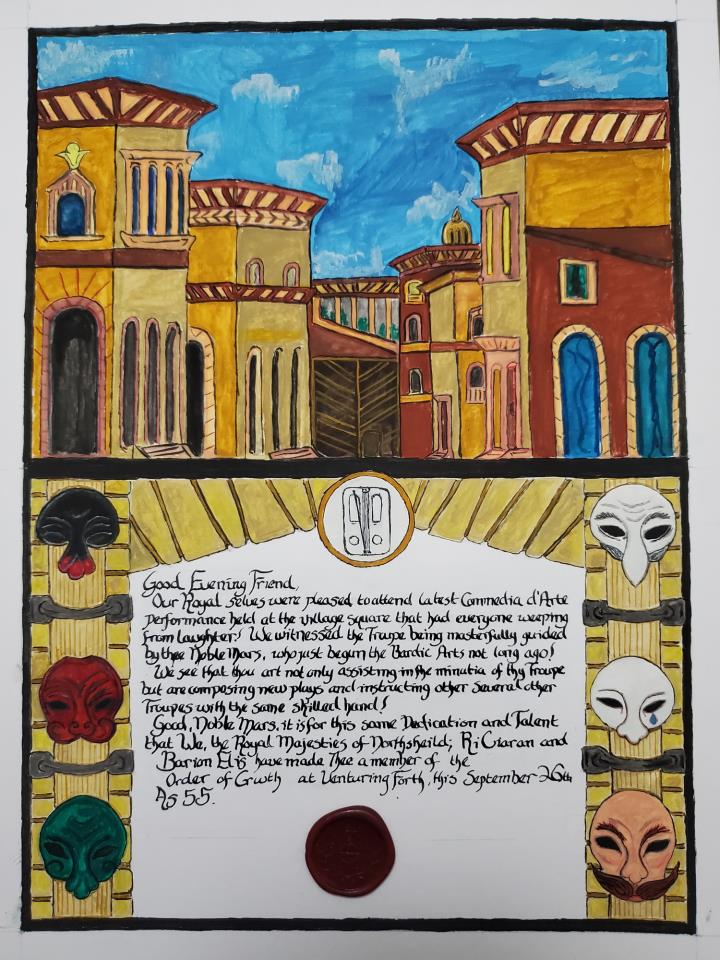 Good Evening Friend,
Our Royal selves were pleased to attend latest Commedia d'Arte
performance held at the village square that had everyone weeping
from laughter! We witnessed the Troupe being masterfully guided
by thee Noble Mars, who just begun the Bardic Arts not long ago!
We see that thou art not only assisting in the minutia of thy Troupe
but are composing new plays and instructing other several other
Troupes with the same skilled hand!
Good, Noble Mars, it is for this same Dedication and Talent
that We, the Royal Majesties of Northsheild; Ri Ciaran and
Banion Elis have made Thee a member of the
Order of Crwth at Venturing Forth, this September 26th
AS 55.